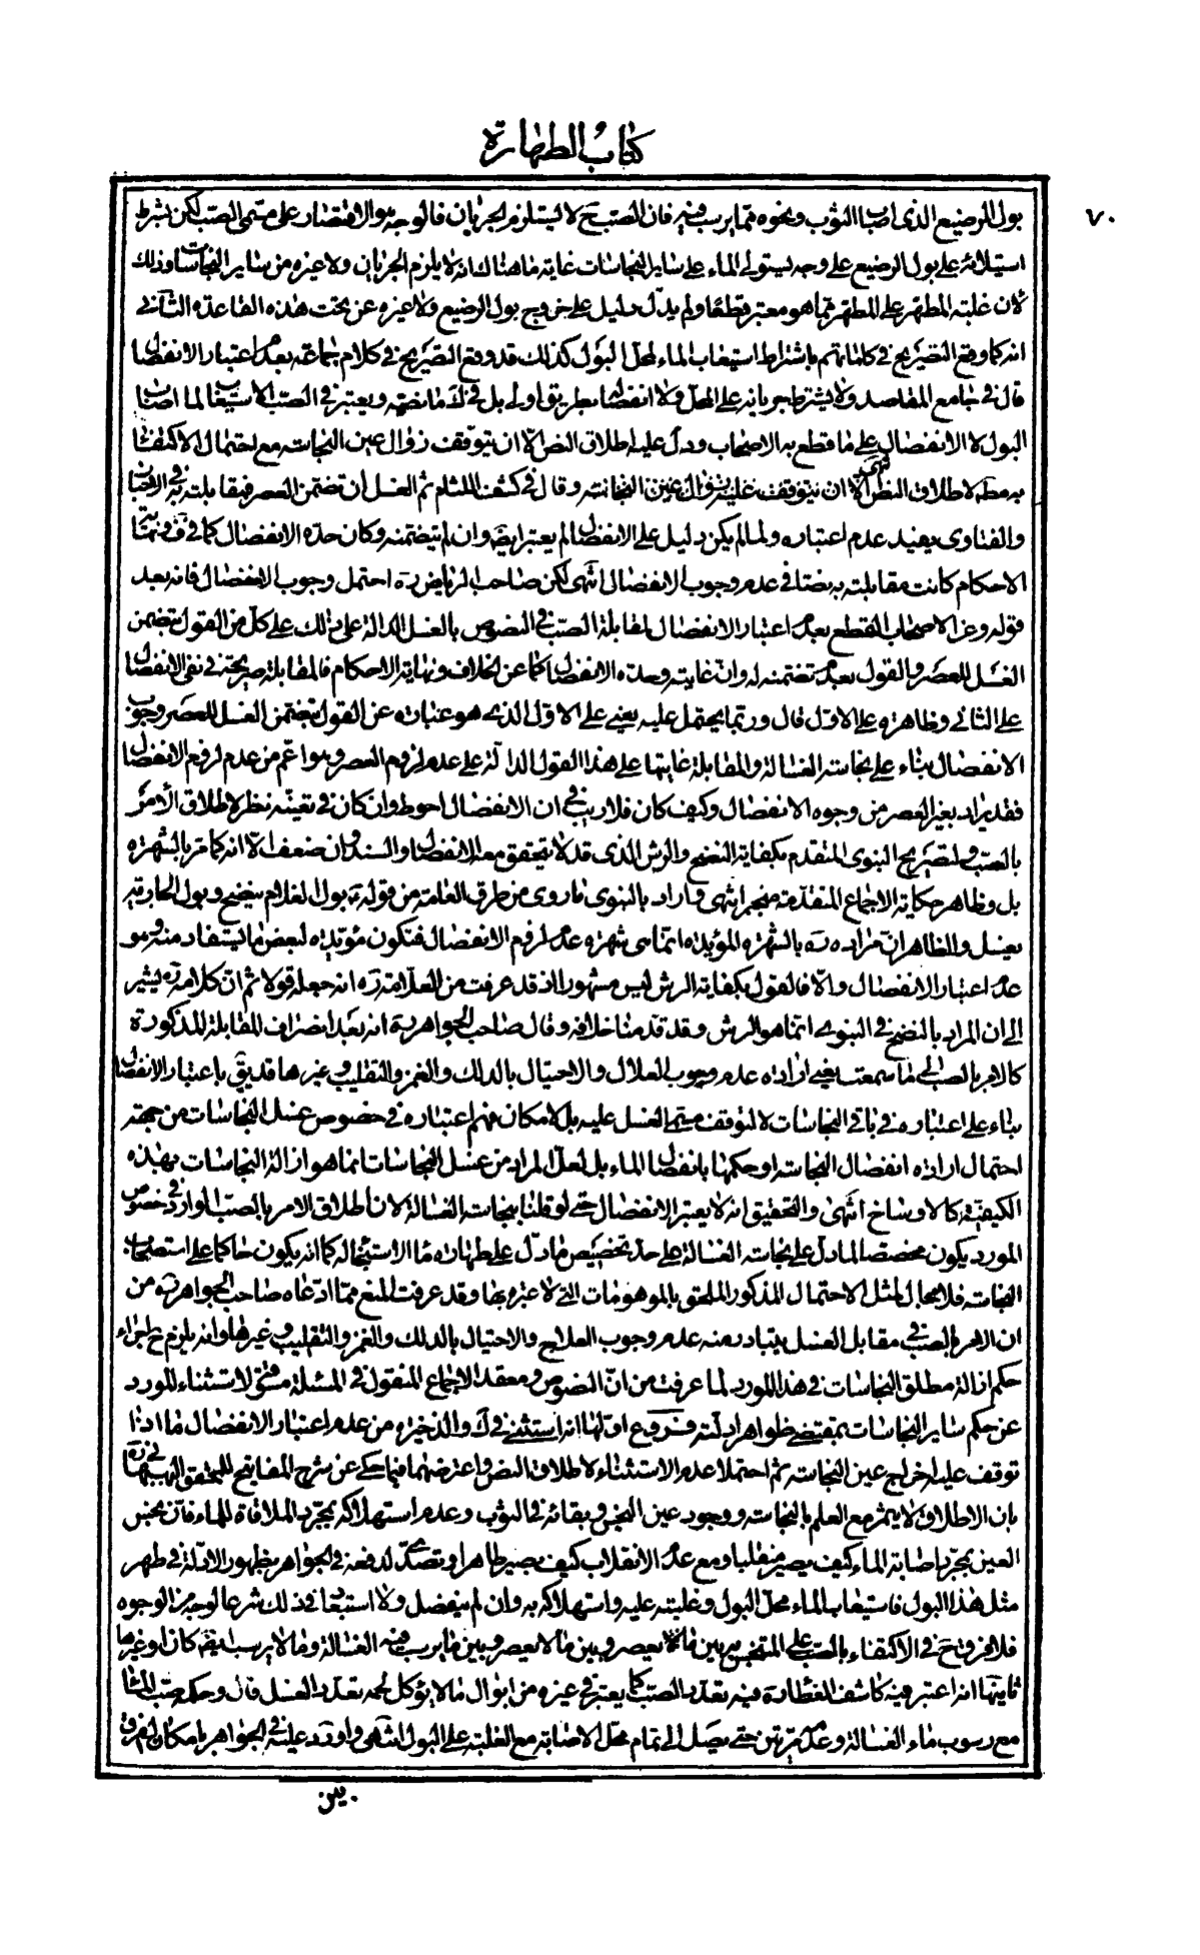 كتاب الطهارة
٧٠
بول الرضيع الذي اصاب الثوب ونحوه مما يرسب فيه فان الصب ح لا يستلزم الجريان فالوجه هو الاقتصار على مسمى الصب لكن بشرط
استيلائه على بول الرضيع على وجه يستولى الماء على ساير النجاسات غاية ما هناك انه لا يلزم الجريان ولا غيره من ساير النجاسات وذلك
لان غلبة المطهر على المطهر مما هو معتبر قطعا ولم يدل دليل على خروج بول الرضيع ولا غيره عن تحت هذه القاعدة الثاني
انه كما وقع التصريح في كلماتهم باشتراط استيعاب الماء لمحل البول كذلك قد وقع التصريح في كلام جماعة بعدم اعتبار الانفصال
قال في جامع المقاصد ولا يشترط جريانه على المحل ولا انفصاله بطريق اولى بل في ك ما نصه ويعتبر في الصب الاستيعاب لما اصاب
البول لا الانفصال على ما قطع به الاصحاب ودل عليه اطلاق النص الا ان يتوقف زوال عين النجاسة مع احتمال الاكتفاء
به مطلقا لاطلاق النص انتهى الا ان يتوقف عليه زوال عين النجاسة وقال في كشف اللثام ثم الغسل ان تضمن العصر فيقابلته به في الاخبار
والفتاوى يفيد عدم اعتباره ولما لم يكن دليل على الانفصال لم يعتبر ايضا وان لم يتضمنه وكان حده الانفصال كما في ف ونهاية
الاحكام كانت مقابلته به نصا في عدم وجوب الانفصال انتهى لكن صاحب الرياض ره احتمل وجوب الانفصال فانه بعد
قوله وعن الاصحاب القطع بعدم اعتبار الانفصال لمقابلة الصب في النصوص بالغسل الدالة على ذلك على كل من القول بتضمن
الغسل للعصر والقول بعدم تضمنه له وان غايته وحده الانفصال كما عن الخلاف ونهاية الاحكام فالمقابلة صريحة في نفي الانفصال
على الثاني وظاهره على الاول قال وربما يحتمل عليه يعني على الاول الذي هو عبارة عن القول بتضمن الغسل للعصر وجوب
الانفصال بناء على نجاسة الغسالة والمقابلة غايتها على هذا القول الدلالة على عدم لزوم العصر وهو اعم من عدم لزوم الانفصال
فقد يراد بغير العصر من وجوه الانفصال وكيف كان فلا ريب في ان الانفصال احوط وان كان في تعينه نظر لاطلاق الأمر
بالصب وتصريح النبوي المتقدم بكفاية النضح والرش الذي قد لا يتحقق معه الانفصال والسند وان ضعف الا انه كما مر بالشهرة
بل وظاهر حكاية الاجماع المتقدمة منجبر انتهى واراد بالنبوي ما روى من طرق العامة من قوله ص بول الغلام ينضح وبول الجارية
يغسل والظاهر ان مراده ره بالشهرة المؤيدة انما هي شهرة عدم لزوم الانفصال فتكون مؤيدة لبعض ما يستفاد منه وهو
عدم اعتبار الانفصال والا فالقول بكفاية الرش ليس مشهورا اذ قد عرفت من العلامة ره انه جعله قولا ثم ان كلامه ره يشير
الى ان المراد بالنضح في النبوي انما هو الرش وقد قدمنا خلافه وقال صاحب الجواهر ره انه بعد انصراف المقابلة المذكورة
كالامر بالصب الى ما سمعت يعني ارادة عدم وجوب العلاج والاحتيال بالدلك والغمز والتقليب وغيرها قد يق باعتبار الانفصال
بناء على اعتباره في باقي النجاسات لا لتوقف مسمى الغسل عليه بل لامكان فهم اعتباره في خصوص غسل النجاسات من جهة
احتمال ارادة انفصال النجاسة او حكمها بانفصال الماء بل لعل المراد من غسل النجاسات انما هو ازالة النجاسات بهذه
الكيفية كالاوساخ انتهى والتحقيق انه لا يعتبر الانفصال حتى لو قلنا بنجاسة الغسالة لان اطلاق الامر بالصب الوارد في خصوص
المورد يكون مخصصا لما دل على نجاسة الغسالة على حد تخصيص ما دل على طهارة ماء الاستنجاء له كما انه يكون حاكما على استصحاب
النجاسة فلا مجال لمثل الاحتمال المذكور الملحق بالموهومات التي لا عبرة بها وقد عرفت المنع مما ادعاه صاحب الجواهر ره من
ان الامر بالصب في مقابل الغسل يتبادر منه عدم وجوب العلاج والاحتيال بالدلك والغمز والتقليب وغيرها وانه يلزم ح اجراء
حكم ازالة مطلق النجاسات في هذا المورد لما عرفت من ان النصوص ومعقد الاجماع المنقول في المسئلة مسوق لاستثناء المورد
عن حكم ساير النجاسات بمقتضى ظواهر ادلته فروع اولها انه استثنى في ك والذخيرة من عدم اعتبار الانفصال ما اذا
توقف عليه اخراج عين النجاسة ثم احتملا عدم الاستثناء لاطلاق النص واعترضهما فيما حكي عن شرح المفاتيح للمحقق البهبهاني ره
بان الاطلاق لا يثمر مع العلم بالنجاسة ووجود عين النجس وبقائه في الثوب وعدم استهلاكه بمجرد الملاقاة للماء فان نجس
العين بمجرد اصابة الماء كيف يصير منقلبا ومع عدم الانقلاب كيف يصير طاهرا وتصدى لدفعه في الجواهر بظهور الادلة في طهر
مثل هذا البول فاستيعاب الماء محل البول وغلبته عليه واستهلاكه به وان لم ينفصل ولا استبعاد في ذلك شرعا لوجه من الوجوه
فلا فرق ح في الاكتفاء بالصب على المتنجس به بين ما يعصر وبين ما لا يعصر وبين ما يرسب فيه الغسالة وما لا يرسب ارضا كان او غيرها
ثانيها انه اعتبر فيه كاشف الغطاء ره فيه تعدد الصب كما يعتبر في غيره من ابوال ما لا يؤكل لحمه تعدد الغسل قال وحكمه صب الماء
مع رسوب ماء الغسالة وعدمه مرتين حتى يصل الى تمام محل الاصابة مع الغلبة على البول انتهى واورد عليه في الجواهر بامكان الفرق
بين